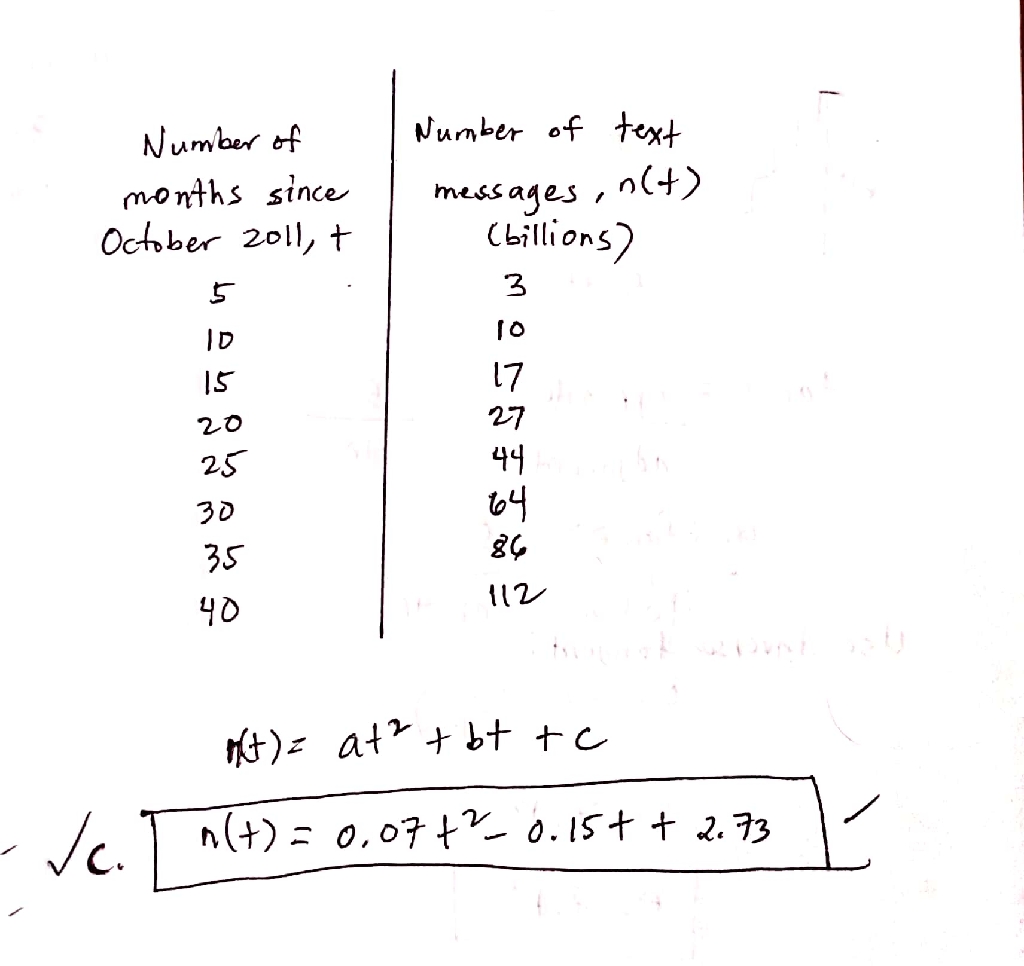 Number of
months since
October 2011, t
Number of text
messages, n(t)
(billions)
5 3
10 10
15 17
20 27
25 44
30 64
35 86
40 112
n(t) = at² + bt + c
√c. n(t) = 0.07t² - 0.15t + 2.73